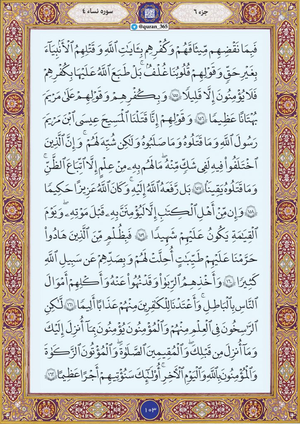 جزء ۶
@quran_365
سوره نساء ۴
فَبِمَا نَقْضِهِم مِّيثَاقَهُمْ وَكُفْرِهِم بِـَٔايَاتِ ٱللَّهِ وَقَتْلِهِمُ ٱلْأَنۢبِيَآءَ
بِغَيْرِ حَقٍّ وَقَوْلِهِمْ قُلُوبُنَا غُلْفٌۢ ۚ بَلْ طَبَعَ ٱللَّهُ عَلَيْهَا بِكُفْرِهِمْ
فَلَا يُؤْمِنُونَ إِلَّا قَلِيلًا ١٥٥ وَبِكُفْرِهِمْ وَقَوْلِهِمْ عَلَىٰ مَرْيَمَ
بُهْتَٰنًا عَظِيمًا ١٥٦ وَقَوْلِهِمْ إِنَّا قَتَلْنَا ٱلْمَسِيحَ عِيسَى ٱبْنَ مَرْيَمَ
رَسُولَ ٱللَّهِ وَمَا قَتَلُوهُ وَمَا صَلَبُوهُ وَلَٰكِن شُبِّهَ لَهُمْ ۚ وَإِنَّ ٱلَّذِينَ
ٱخْتَلَفُوا۟ فِيهِ لَفِى شَكٍّ مِّنْهُ ۚ مَا لَهُم بِهِۦ مِنْ عِلْمٍ إِلَّا ٱتِّبَاعَ ٱلظَّنِّ ۚ
وَمَا قَتَلُوهُ يَقِينًۢا ١٥٧ بَل رَّفَعَهُ ٱللَّهُ إِلَيْهِ ۚ وَكَانَ ٱللَّهُ عَزِيزًا حَكِيمًا
١٥٨ وَإِن مِّنْ أَهْلِ ٱلْكِتَٰبِ إِلَّا لَيُؤْمِنَنَّ بِهِۦ قَبْلَ مَوْتِهِۦ ۖ وَيَوْمَ
ٱلْقِيَٰمَةِ يَكُونُ عَلَيْهِمْ شَهِيدًا ١٥٩ فَبِظُلْمٍ مِّنَ ٱلَّذِينَ هَادُوا۟
حَرَّمْنَا عَلَيْهِمْ طَيِّبَٰتٍ أُحِلَّتْ لَهُمْ وَبِصَدِّهِمْ عَن سَبِيلِ ٱللَّهِ
كَثِيرًا ١٦٠ وَأَخْذِهِمُ ٱلرِّبَوٰا۟ وَقَدْ نُهُوا۟ عَنْهُ وَأَكْلِهِمْ أَمْوَٰلَ
ٱلنَّاسِ بِٱلْبَٰطِلِ ۚ وَأَعْتَدْنَا لِلْكَٰفِرِينَ مِنْهُمْ عَذَابًا أَلِيمًا ١٦١ لَّٰكِنِ
ٱلرَّٰسِخُونَ فِى ٱلْعِلْمِ مِنْهُمْ وَٱلْمُؤْمِنُونَ يُؤْمِنُونَ بِمَآ أُنزِلَ إِلَيْكَ
وَمَآ أُنزِلَ مِن قَبْلِكَ ۚ وَٱلْمُقِيمِينَ ٱلصَّلَوٰةَ ۚ وَٱلْمُؤْتُونَ ٱلزَّكَوٰةَ
وَٱلْمُؤْمِنُونَ بِٱللَّهِ وَٱلْيَوْمِ ٱلْـَٔاخِرِ أُو۟لَٰٓئِكَ سَنُؤْتِيهِمْ أَجْرًا عَظِيمًا ١٦٢
١٠٣